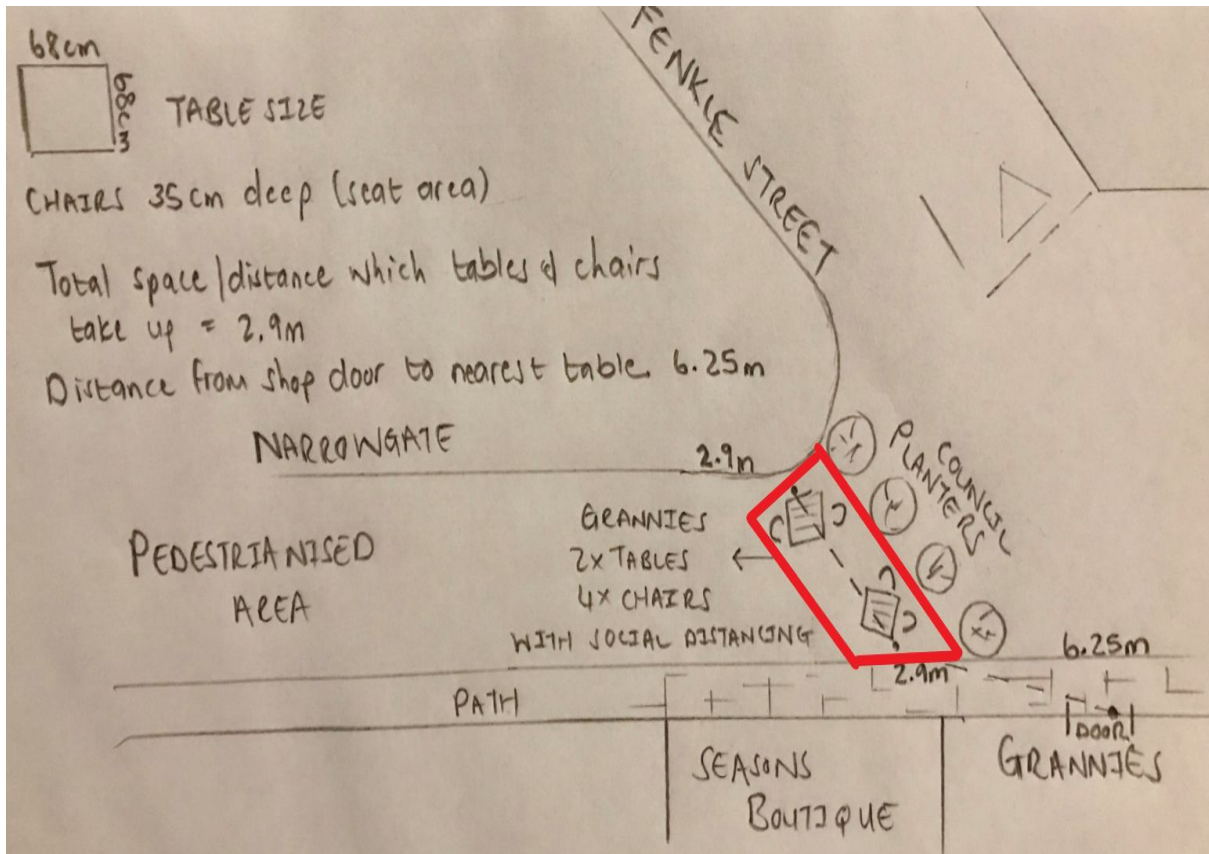 68cm
68cm
TABLE SIZE
CHAIRS 35cm deep (seat area)
Total space/distance which tables & chairs
take up = 2.9m
Distance from shop door to nearest table 6.25m
FENKLE STREET
NARROWGATE
2.9m
COUNCIL
PLANTERS
PEDESTRIANISED
AREA
GRANNIES
2x TABLES
4x CHAIRS
WITH SOCIAL DISTANCING
6.25m
2.9m
PATH
DOOR
SEASONS
BOUTIQUE
GRANNIES